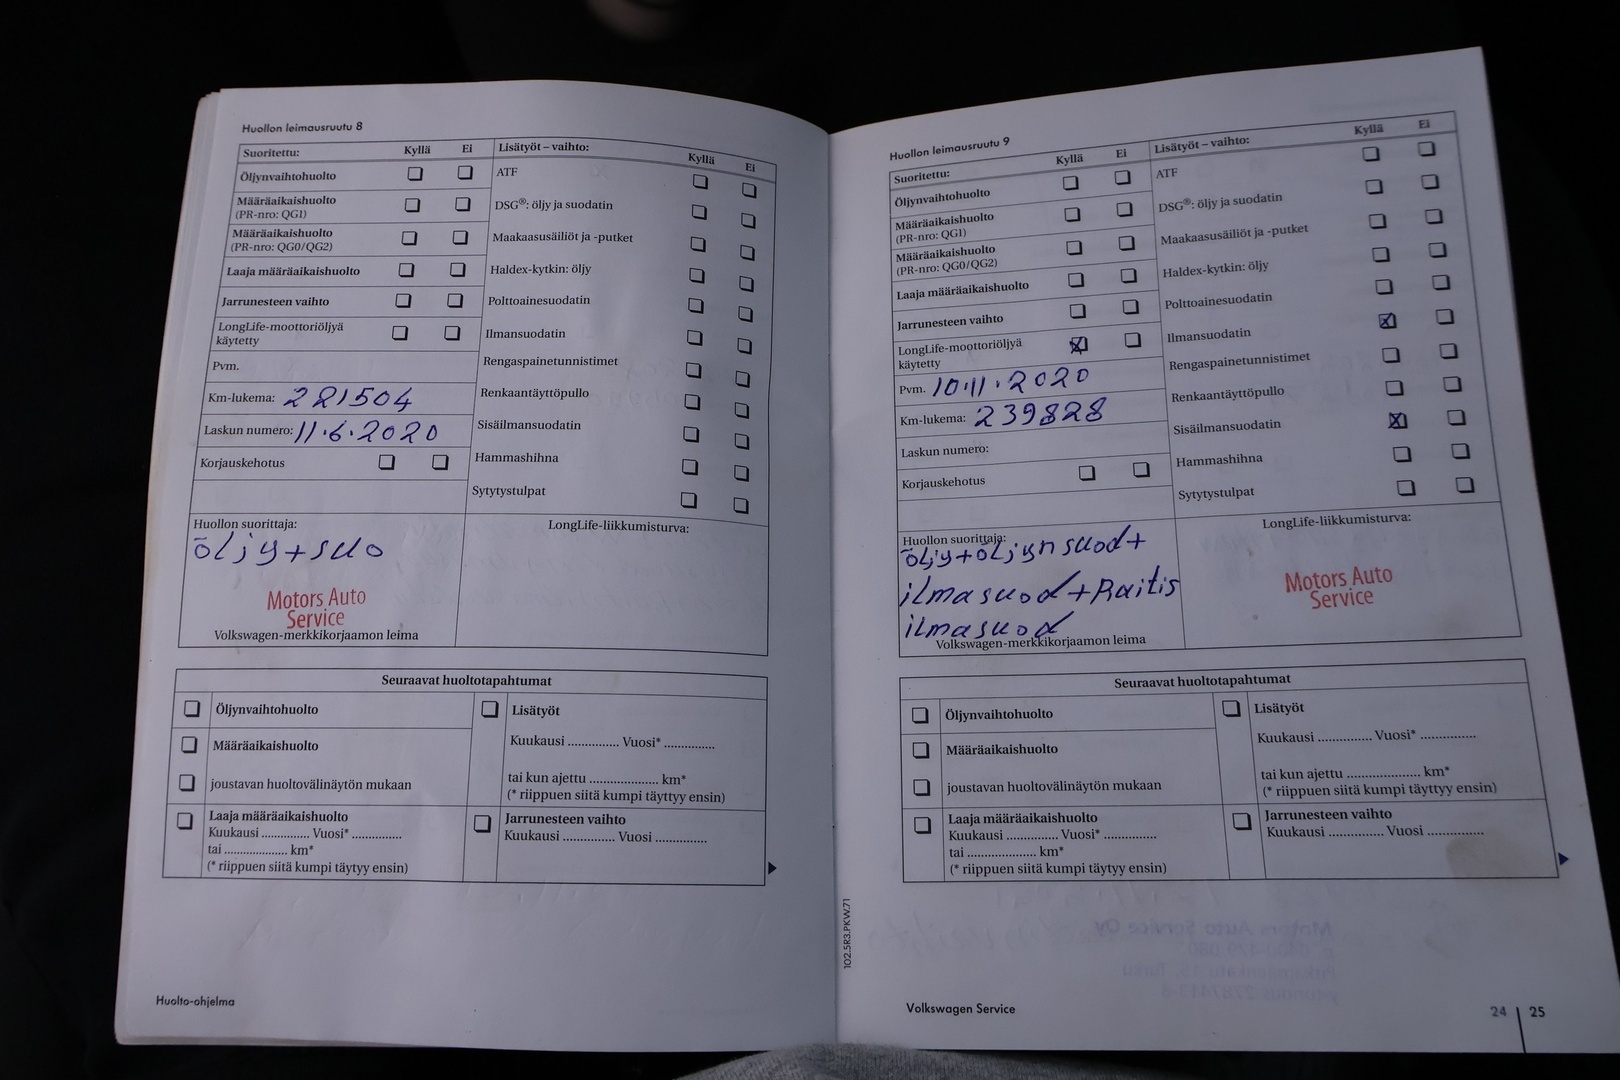 Huollon leimausruutu 8
Suoritettu: Kyllä Ei
Öljynvaihtohuolto
Määräaikaishuolto
(PR-nro: QG1)
Määräaikaishuolto
(PR-nro: QG0/QG2)
Laaja määräaikaishuolto
Jarrunesteen vaihto
LongLife-moottoriöljyä
käytetty
Pvm.
Km-lukema: 221504
Laskun numero: 11.6.2020
Korjauskehotus
Lisätyöt – vaihto: Kyllä Ei
ATF
DSG®: öljy ja suodatin
Maakaasusäiliöt ja -putket
Haldex-kytkin: öljy
Polttoainesuodatin
Ilmansuodatin
Rengaspainetunnistimet
Renkaantäyttöpullo
Sisäilmansuodatin
Hammashihna
Sytytystulpat
Huollon suorittaja:
öljy+suo
Motors Auto
Service
Volkswagen-merkkikorjaamon leima
LongLife-liikkumisturva:
Seuraavat huoltotapahtumat
Öljynvaihtohuolto
Määräaikaishuolto
joustavan huoltovälinäytön mukaan
Laaja määräaikaishuolto
Kuukausi .............. Vuosi* .............
tai .................... km*
(* riippuen siitä kumpi täytyy ensin)
Lisätyöt
Kuukausi .............. Vuosi* .............
tai kun ajettu .................... km*
(* riippuen siitä kumpi täyttyy ensin)
Jarrunesteen vaihto
Kuukausi .............. Vuosi .............
Huolto-ohjelma
102.5R3.PKW.71
Huollon leimausruutu 9
Suoritettu: Kyllä Ei
Öljynvaihtohuolto
Määräaikaishuolto
(PR-nro: QG1)
Määräaikaishuolto
(PR-nro: QG0/QG2)
Laaja määräaikaishuolto
Jarrunesteen vaihto
LongLife-moottoriöljyä
käytetty
Pvm. 10.11.2020
Km-lukema: 239828
Laskun numero:
Korjauskehotus
Lisätyöt – vaihto: Kyllä Ei
ATF
DSG®: öljy ja suodatin
Maakaasusäiliöt ja -putket
Haldex-kytkin: öljy
Polttoainesuodatin
Ilmansuodatin
Rengaspainetunnistimet
Renkaantäyttöpullo
Sisäilmansuodatin
Hammashihna
Sytytystulpat
Huollon suorittaja:
öljy+öljyn suod+
ilmasuod+Raitis
ilmasuod
Volkswagen-merkkikorjaamon leima
LongLife-liikkumisturva:
Motors Auto
Service
Seuraavat huoltotapahtumat
Öljynvaihtohuolto
Määräaikaishuolto
joustavan huoltovälinäytön mukaan
Laaja määräaikaishuolto
Kuukausi .............. Vuosi* .............
tai .................... km*
(* riippuen siitä kumpi täytyy ensin)
Lisätyöt
Kuukausi .............. Vuosi* .............
tai kun ajettu .................... km*
(* riippuen siitä kumpi täyttyy ensin)
Jarrunesteen vaihto
Kuukausi .............. Vuosi .............
Volkswagen Service
24 | 25